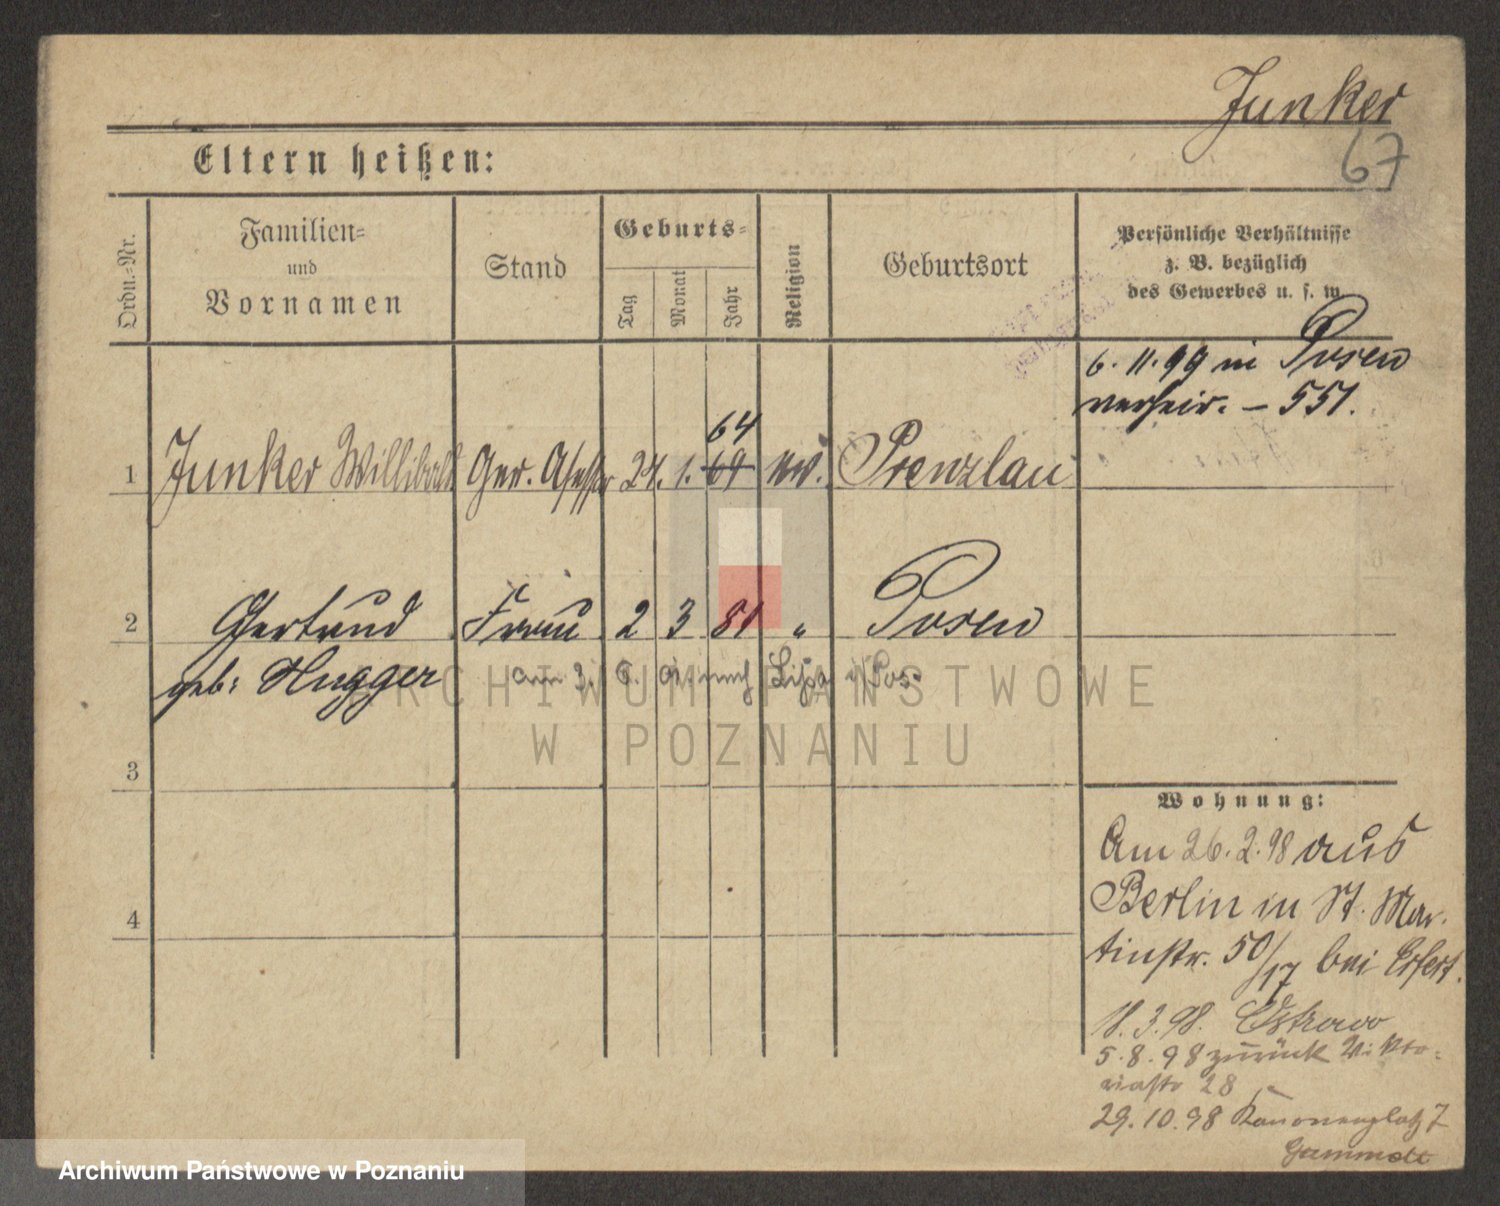 Junker
67
Eltern heißen:
Ordn.-Nr.
Familien-
und
Vornamen
Stand
Geburts-
Tag
Monat
Jahr
Religion
Geburtsort
Persönliche Verhältnisse
z. B. bezüglich
des Gewerbes u. s. w.
6. 11. 99 in Posen
verheir. – 551.
64
1 Junker Willibald Ger. Assessor 24. 1. 69 ev. Prenzlau
2 Gertrud Frau 2 3 81 " Posen
geb: Hugger am 3. 6. nach Lissa i/Pos.
3
Wohnung:
Am 26. 2. 98 aus
Berlin in St. Mar-
tinstr. 50/17 bei Erfert.
4
18. 3. 98. Ostrowo
5. 8. 98 zurück Vikto-
riastr 28
29. 10. 98 Kanonenplatz 7
ARCHIWUM PAŃSTWOWE
W POZNANIU
Archiwum Państwowe w Poznaniu